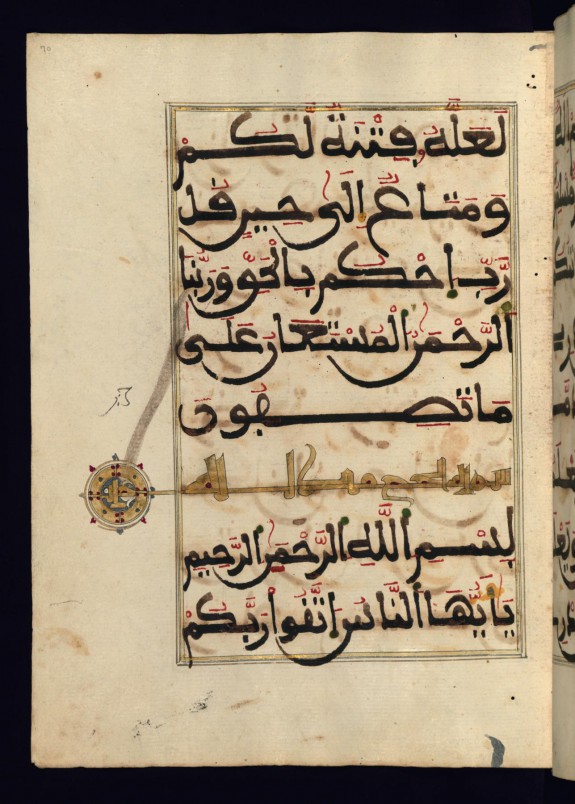 لَعَلَّهُۥ فِتْنَةٌ لَّكُمْ
وَمَتَاعٌ اِلَىٰ حِينٍ قُل
رَّبِّ احْكُم بِالْحَقِّ وَرَبُّنَا
الرَّحْمَٰنُ الْمُسْتَعَانُ عَلَىٰ
مَا تَصِفُونَ
سورة الحج
بِسْمِ اللَّهِ الرَّحْمَٰنِ الرَّحِيمِ
يَٰأَيُّهَا النَّاسُ اتَّقُوا رَبَّكُمْ